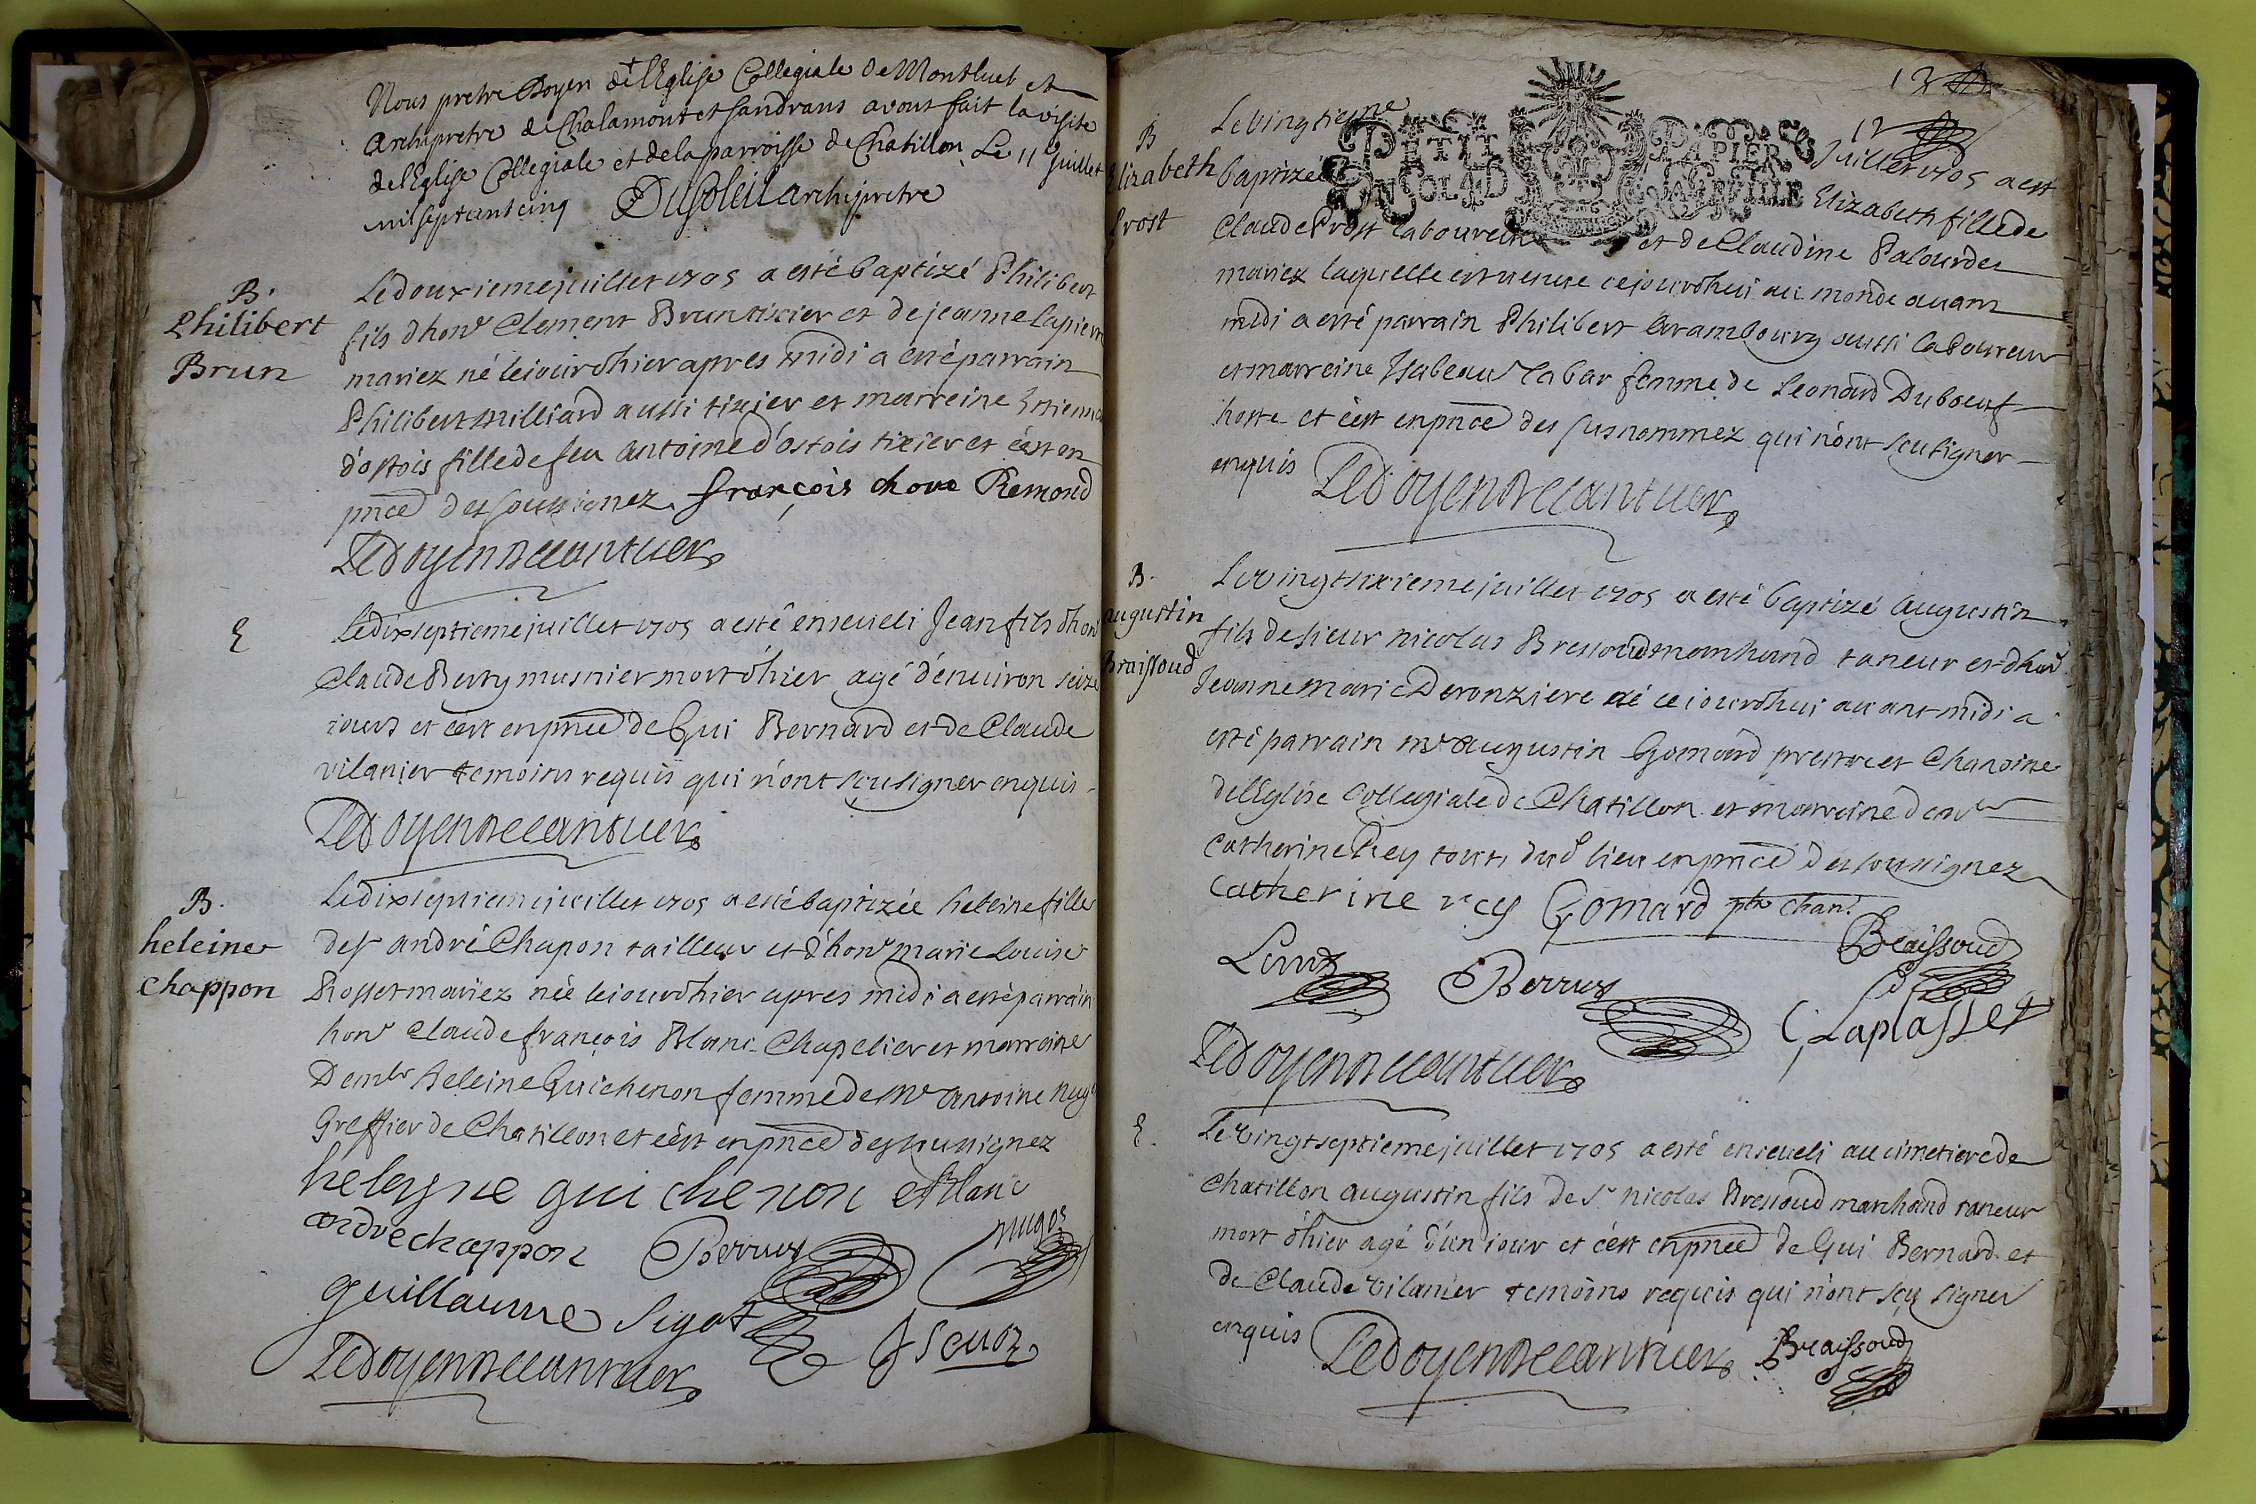 Nous pretre Doyen de l'Eglise Collegiale de Montluel et
Archipretre de Chalamont et Sandrans avons fait la visite
de l'Eglise Collegiale et de la parroisse de Chatillon Le 11 Juillet
mil sept cent cinq Dusoleil archipretre
B.
Philibert
Brun
Le douxieme juillet 1705 a esté baptizé Philibert
fils d'honr Clement Brun tixier et de jeanne Lapierre
mariez né le jour d'hier apres midi a esté parrain
Philibert Milliard aussi tixier et marreine Estienne
d'ostois fille de feu antoine d'ostois tixier et c'est en
pnce des soussignez françois chove Remond
Ledoyen
E
Le dixseptieme juillet 1705 a esté enseveli Jean fils d'honr
Claude Berry musnier mort d'hier agé d'environ seize
jours et c'est en pnce de Gui Bernard et de Claude
vilanier temoins requis qui n'ont sçu signer enquis
Ledoyen
B.
heleine
chappon
Le dixseptieme juillet 1705 a esté baptizée heleine fille
de sr andré Chapon tailleur et d'honr marie Louise
Rosset mariez née le jour d'hier apres midi a esté parrain
honr Claude françois Blanc Chapelier et marreine
Demlle heleine Guichenon femme de Mr antoine
Greffier de Chatillon et c'est en pnce des soussignez
heleyne guichenon Blanc
andre chappon Perruex
guillaume Sigot
Ledoyen
12
12
B
Elizabeth
Prost
PETIT PAPIER
Le vingtieme Juillet 1705 a esté
baptizée Elizabeth fille de
Claude Prost laboureur et de Claudine Palourdes
mariez laquelle est venue cejourdhui au monde avant
midi a esté parrain Philibert arambourg aussi laboureur
et marreine Isabeau labar femme de Leonard Duboeuf
hoste et c'est en pnce des susnommez qui n'ont sçu signer
enquis Ledoyen
B.
augustin
Braissoud
Le vingtsixieme juillet 1705 a esté baptizé augustin
fils de sieur nicolas Bressoud marchand taneur et d'honr
Jeanne marie Deronziere né cejourdhui avant midi a
esté parrain mr augustin Gomard prestre et Chanoine
de l'Eglise Collegiale de Chatillon et marreine demlle
Catherine Rey tous dud lieu en pnce des soussignez
Catherine rey Gomard ptre chan.
Braissoud
Perruex
C Laplasse
Ledoyen
E.
Le vingtseptieme juillet 1705 a esté enseveli au cimetiere de
Chatillon augustin fils de Sr nicolas Bressoud marchand taneur
mort d'hier agé d'un jour et c'est en pnce de Gui Bernard et
de Claude vilanier temoins requis qui n'ont sçu signer
enquis Ledoyen Braissoud